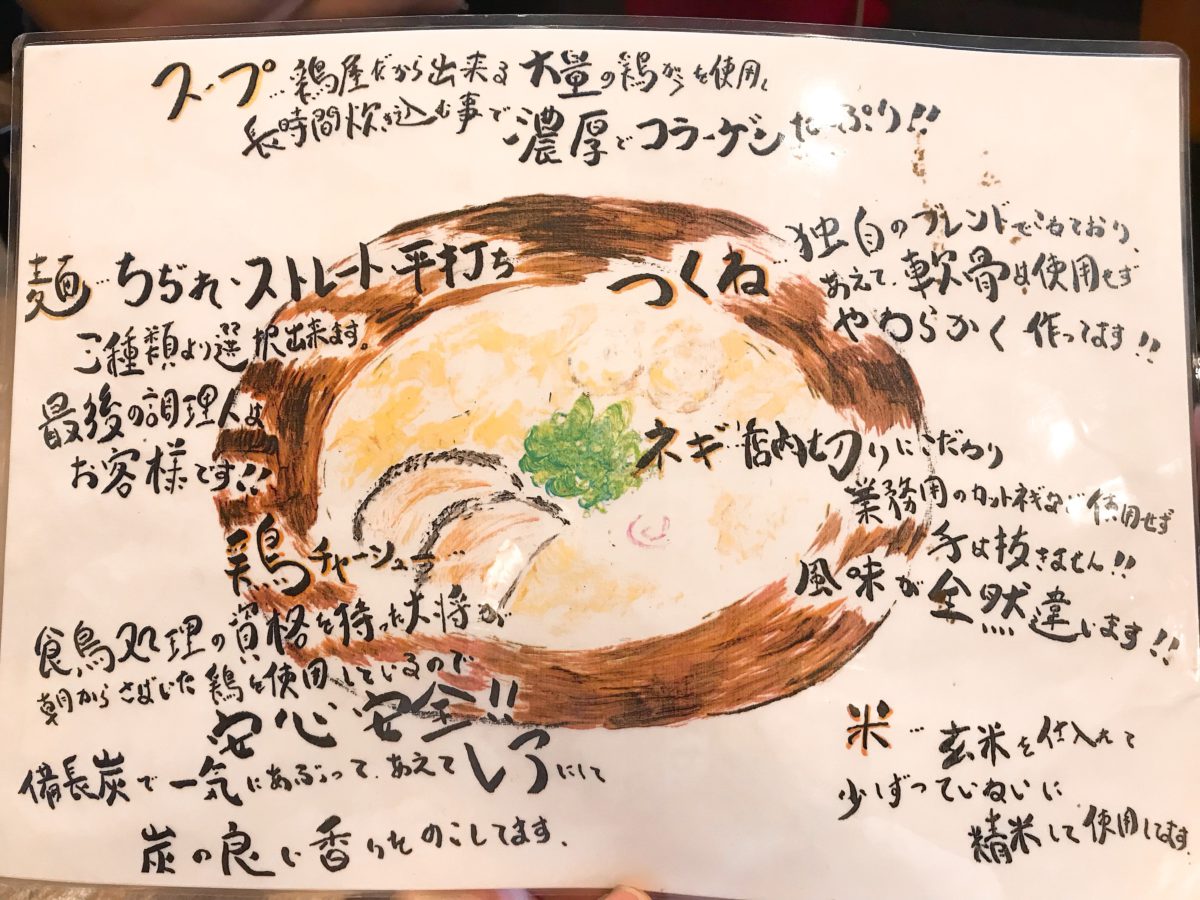 スープ…鶏屋だから出来る大量の鶏がらを使用し
長時間炊き込む事で濃厚でコラーゲンたっぷり!!
麺…ちぢれ・ストレート平打ち
三種類より選択出来ます。
最後の調理人は
お客様です!!
つくね…独自のブレンドでこねており、
あえて、軟骨は使用せず
やわらかく作ってます!!
ネギ…店内切りにこだわり
業務用のカットネギなど使用せず
手は抜きません!!
風味が全然違います!!
鶏チャーシュー…
食鳥処理の資格を持った大将が
朝からさばいた鶏を使用しているので
安心安全!!
備長炭で一気にあぶって、あえてレアにして
炭の良い香りをのこしてます。
米…玄米を仕入れて
少しずつていねいに
精米して使用してます。